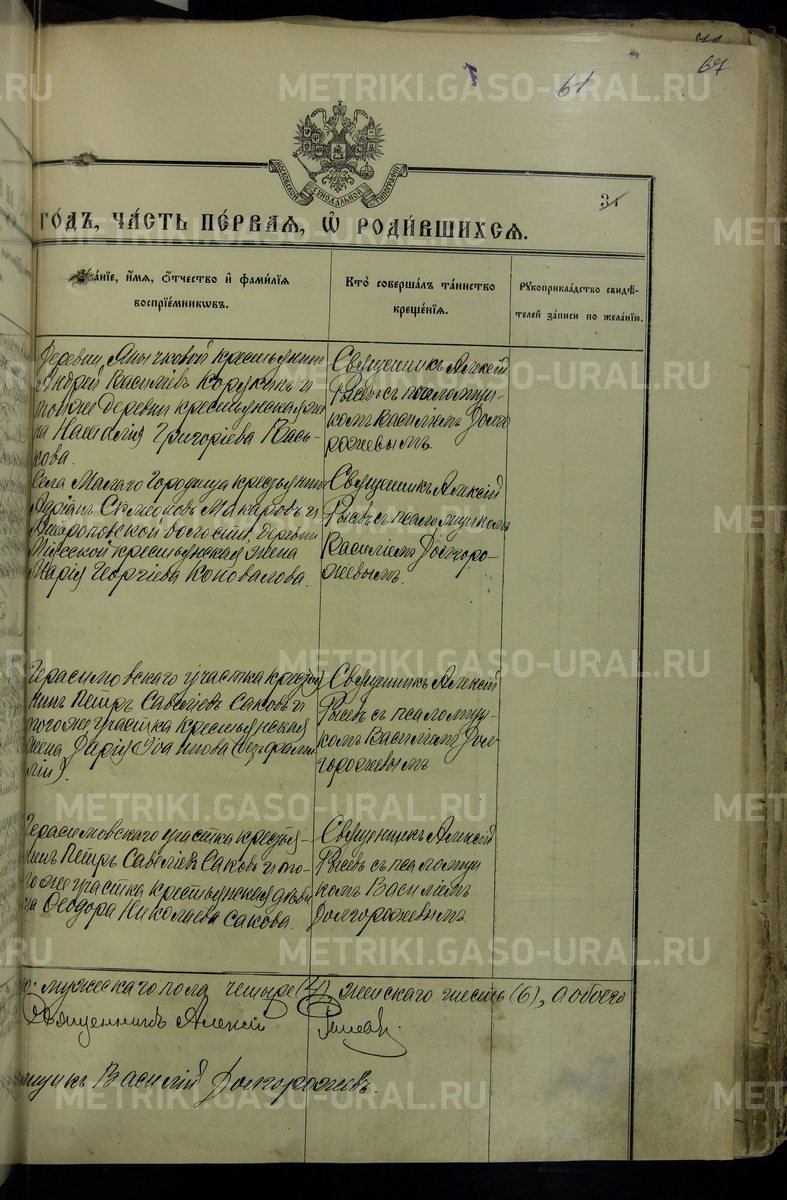 67
61
31
МОСКОВСКОЙ СѴНОДАЛЬНОЙ ТИПОГРАФІИ
ГО́ДЪ, ЧА́СТЬ ПЕ́РВАЯ, Ѽ РОДИ́ВШИХСЯ.
Зва́ніе, и́мя, ѻ́тчество и҆ фами́лія
воспріе́мникѡвъ.
Кто̀ соверша́лъ та́инство
креще́нія.
Рꙋкоприкла́дство свидѣ́-
телей за́писи по жела́нію.
Деревни крестьянинъ
Андрей Василіевъ и
тойже деревни крестьянская же
на Наталія Григоріева Вась-
кова.
Священникъ Алексій
съ псаломщи-
комъ Василіемъ Долго
рожевымъ.
Села Малаго Городища крестьянинъ
Адріанъ Симеоновъ Макаровъ и
волости, деревни
крестьянская жена
Марія Георгіева Коновалова.
Священникъ Алексій
съ псаломщикомъ
Василіемъ Долгоро-
жевымъ.
Герасимовскаго участка крестья
нинъ Петръ Савеліевъ Саковъ и
тогоже участка крестьянская
жена Дарія Іоаннова (безъ фами
ліи).
Священникъ Алексій
съ псаломщи-
комъ Василіемъ Дол-
горожевымъ
Герасимовскаго участка крестья-
нинъ Петръ Савеліевъ Саковъ и то-
гоже участка крестьянская дѣви
ца Ѳеодора Николаева Сакова.
Священникъ Алексій
съ псаломщи
комъ Василіемъ
Долгорожевымъ.
мужескаго пола четыре (4), женскаго шесть (6), а обоего
Священникъ Алексій
Василій Долгорожевъ.
METRIKI.GASO-URAL.RU